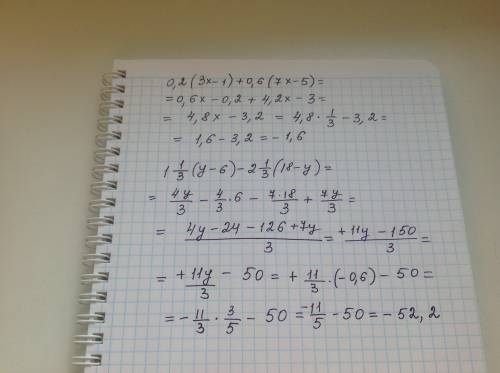 0,2(3x-1)+0,6(7x-5)=
=0,6x-0,2+4,2x-3=
= 4,8x-3,2 = 4,8·1/3-3,2=
= 1,6-3,2=-1,6
1 1/3(y-6)-2 1/3(18-y)=
= 4y/3 - 4/3·6 - 7·18/3 + 7y/3 =
= (4y-24-126+7y)/3 = (+11y-150)/3 =
= +11y/3 - 50 = + 11/3·(-0,6)-50=
=-11/3·3/5 - 50 = -11/5-50=-52,2